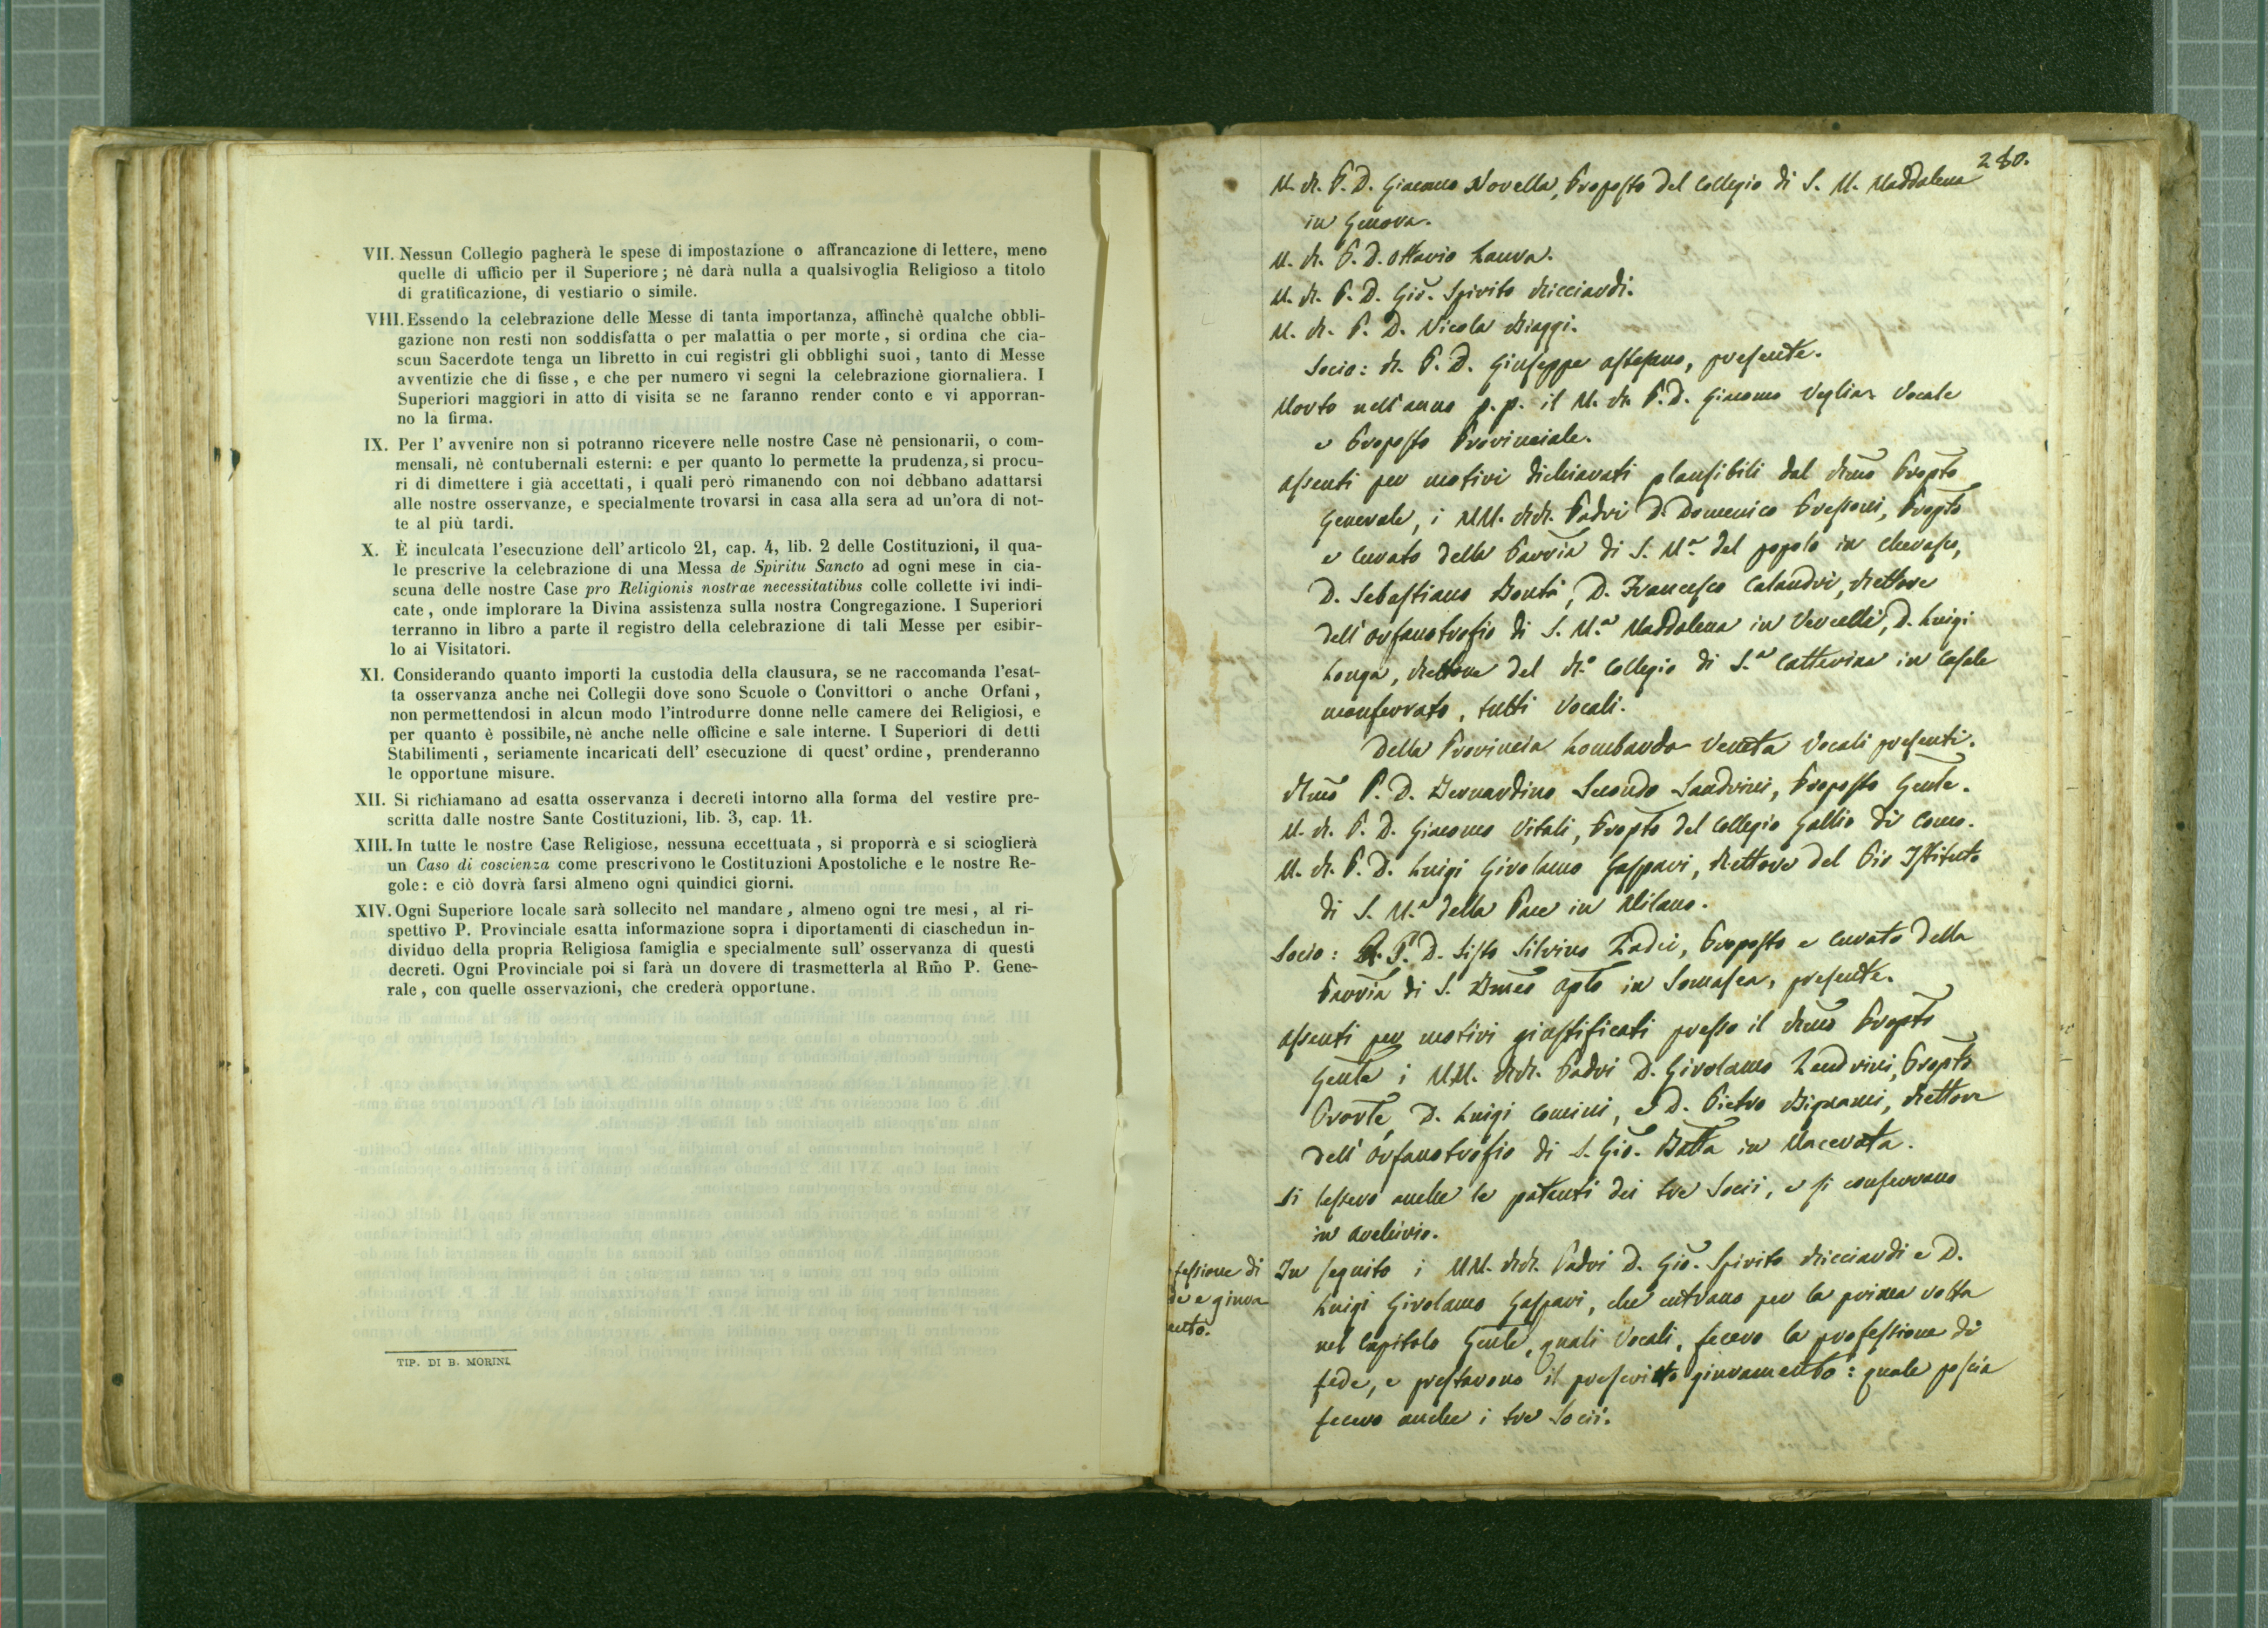 VII. Nessun Collegio pagherà le spese di impostazione o affrancazione di lettere, meno
quelle di ufficio per il Superiore; nè darà nulla a qualsivoglia Religioso a titolo
di gratificazione, di vestiario o simile.
VIII. Essendo la celebrazione delle Messe di tanta importanza, affinchè qualche obbli-
gazione non resti non soddisfatta o per malattia o per morte, si ordina che cia-
scun Sacerdote tenga un libretto in cui registri gli obblighi suoi, tanto di Messe
avventizie che di fisse, e che per numero vi segni la celebrazione giornaliera. I
Superiori maggiori in atto di visita se ne faranno render conto e vi apporran-
no la firma.
IX. Per l'avvenire non si potranno ricevere nelle nostre Case nè pensionarii, o com-
mensali, nè contubernali esterni: e per quanto lo permette la prudenza, si procu-
ri di dimettere i già accettati, i quali però rimanendo con noi debbano adattarsi
alle nostre osservanze, e specialmente trovarsi in casa alla sera ad un'ora di not-
te al più tardi.
X. È inculcata l'esecuzione dell'articolo 21, cap. 4, lib. 2 delle Costituzioni, il qua-
le prescrive la celebrazione di una Messa de Spiritu Sancto ad ogni mese in cia-
scuna delle nostre Case pro Religionis nostrae necessitatibus colle collette ivi indi-
cate, onde implorare la Divina assistenza sulla nostra Congregazione. I Superiori
terranno in libro a parte il registro della celebrazione di tali Messe per esibir-
lo ai Visitatori.
XI. Considerando quanto importi la custodia della clausura, se ne raccomanda l'esat-
ta osservanza anche nei Collegii dove sono Scuole o Convittori o anche Orfani,
non permettendosi in alcun modo l'introdurre donne nelle camere dei Religiosi, e
per quanto è possibile, nè anche nelle officine e sale interne. I Superiori di detti
Stabilimenti, seriamente incaricati dell'esecuzione di quest'ordine, prenderanno
le opportune misure.
XII. Si richiamano ad esatta osservanza i decreti intorno alla forma del vestire pre-
scritta dalle nostre Sante Costituzioni, lib. 3, cap. 11.
XIII. In tutte le nostre Case Religiose, nessuna eccettuata, si proporrà e si scioglierà
un Caso di coscienza come prescrivono le Costituzioni Apostoliche e le nostre Re-
gole: e ciò dovrà farsi almeno ogni quindici giorni.
XIV. Ogni Superiore locale sarà sollecito nel mandare, almeno ogni tre mesi, al ri-
spettivo P. Provinciale esatta informazione sopra i diportamenti di ciaschedun in-
dividuo della propria Religiosa famiglia e specialmente sull'osservanza di questi
decreti. Ogni Provinciale poi si farà un dovere di trasmetterla al Rm̃o P. Gene-
rale, con quelle osservazioni, che crederà opportune.
TIP. DI B. MORINI.
280.
M. R. P. D. Giacomo Novella, Proposto del Collegio di S. M. Maddalena
in Genova.
M. R. P. D. Ottavio
M. R. P. D. Gio. Spirito Ricciardi.
M. R. P. D. Nicola Biaggi.
Socio: R. P. D. Giuseppe presente.
Morto nell'anno p.p. il M. R. P. D. Giacomo Vocale
e Proposto Provinciale.
assenti per motivi dichiarati plausibili dal Rmo Propto
Generale, i MM. RR. Padri D. Domenico Pressoni, Propto
e Curato della Parria di S. Ma. del popolo in Cherasco,
D. Sebastiano Bontà, D. Francesco Calandri, Rettore
dell'orfanotrofio di S. Ma. Maddalena in Vercelli, D. Luigi
Longa, Rettore del R.o Collegio di S.a Catterina in Casale
monferrato, tutti Vocali.
Della Provincia Lombardo-Veneta Vocali presenti.
Rmo P. D. Bernardino Secondo Sandrini, Proposto Genle.
M. R. P. D. Giacomo Vitali, Propto del Collegio Gallio di Como.
M. R. P. D. Luigi Girolamo Gaspari, Rettore del Pio Istituto
di S. M.a della Pace in Milano.
Socio: R. P. D. Sisto Silvino Zadei, Proposto e Curato della
Parria di S. Bmeo Aplo in Somasca, presente.
assenti per motivi giustificati presso il Rmo Propto
Genle i MM. RR. Padri D. Girolamo Zendrini, Propto
D. Luigi Comini, e D. Pietro Bignami, Rettore
dell'orfanotrofio di S. Gio. Batta in Macerata.
Si lessero anche le patenti dei tre Socii, e si conservano
in archivio.
fessione di
de e giura-
mento.
In seguito i MM. RR. Padri D. Gio. Spirito Ricciardi e D.
Luigi Girolamo Gaspari, che entrano per la prima volta
nel Capitolo Genle, quali Vocali, fecero la professione di
fede, e prestarono il prescritto giuramento: quale poscia
fecero anche i tre Socii.